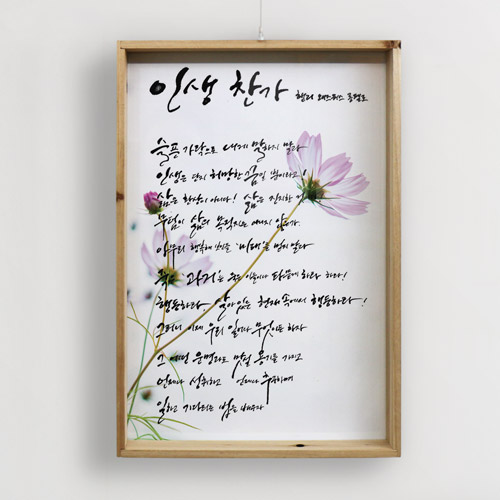 인생 찬가 헨리 왜즈워스 롱펠로
슬픈 가락으로 내게 말하지 말라
인생은 단지 허망한 꿈일 뿐이라고!
삶은 환상이 아니다! 삶은 진지한 것
무덤이 삶의 목적지는 아니지 않은가.
아무리 행복해 보일지라도 '미래'를 믿지 말라
죽은 '과거'는 죽은 이들이나 파묻게 하라
행동하라, 살아있는 현재 속에서 행동하라!
그러니 이제 우리 일어나 무엇이든 하자
그 어떤 운명과도 맞설 용기를 가지고
언제나 성취하고 언제나 추구하며
일하고 기다리는 법을 배우자